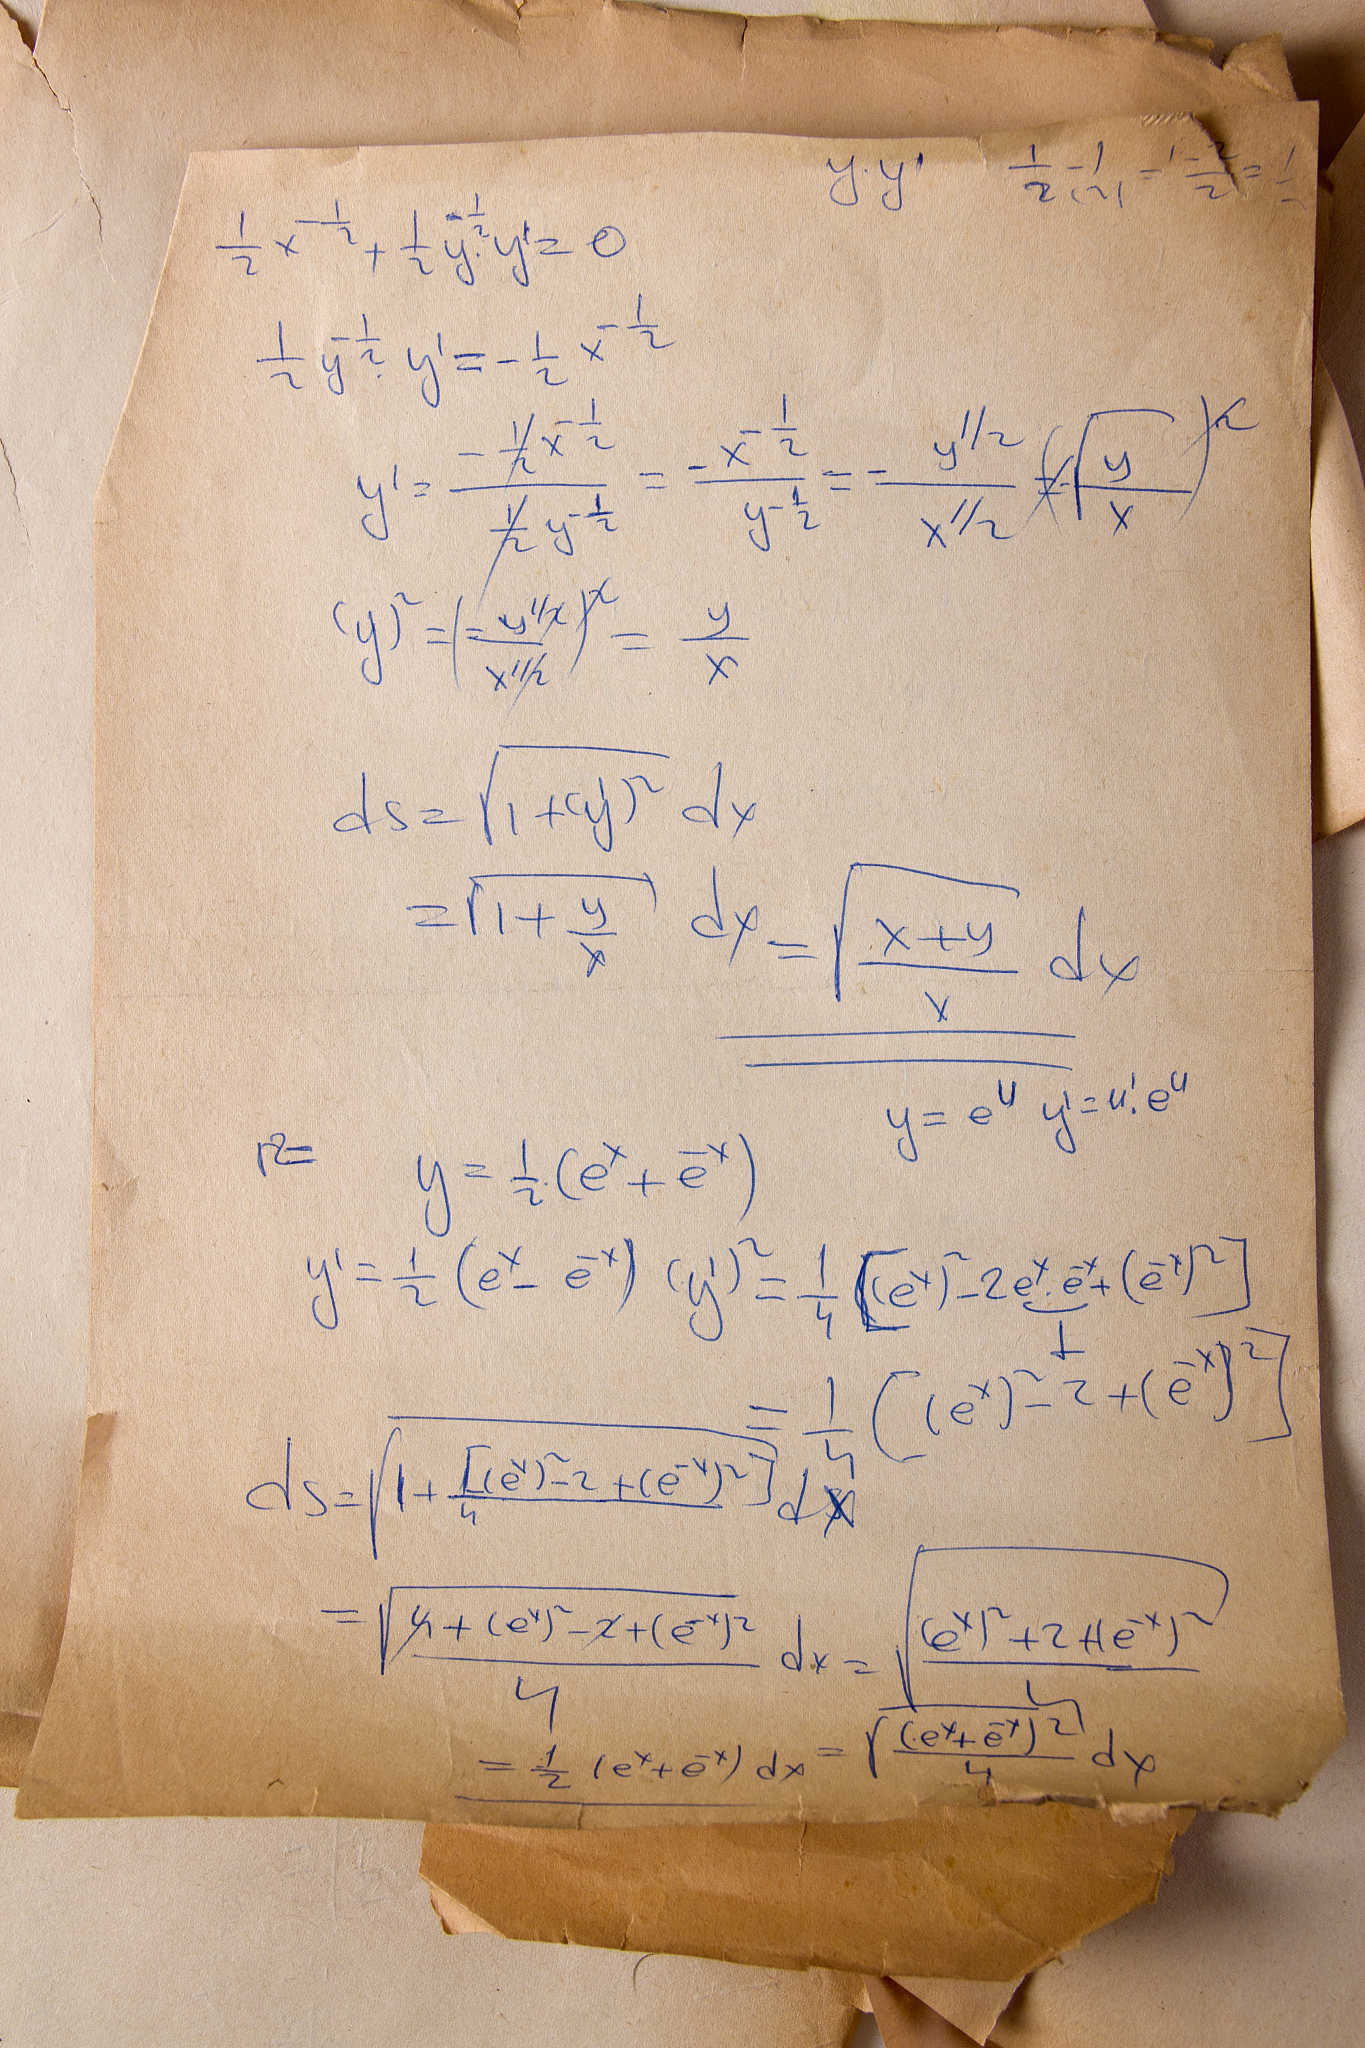 y·y' 1/2 - 1
1/2 x^(-1/2) + 1/2 y^(-1/2) · y' = 0
1/2 y^(-1/2) · y' = - 1/2 x^(-1/2)
y' = (- 1/2 x^(-1/2)) / (1/2 y^(-1/2)) = - x^(-1/2) / y^(-1/2) = - y^(1/2) / x^(1/2) (- √(y/x))^2
(y)^2 = (- y^(1/2) / x^(1/2))^2 = y/x
ds = √(1 + (y')^2) dx
= √(1 + y/x) dx = √((x+y)/x) dx
y = e^u y' = u'·e^u
y = 1/2 · (e^x + e^-x)
y' = 1/2 (e^x - e^-x) (y')^2 = 1/4 [(e^x)^2 - 2e^x · e^-x + (e^-x)^2]
1
= 1/4 [(e^x)^2 - 2 + (e^-x)^2]
ds = √(1 + [(e^x)^2 - 2 + (e^-x)^2]/4) dx
= √((4 + (e^x)^2 - 2 + (e^-x)^2)/4) dx = √(((e^x)^2 + 2 + (e^-x)^2)/4)
= 1/2 (e^x + e^-x) dx = √((e^x + e^-x)^2/4) dx